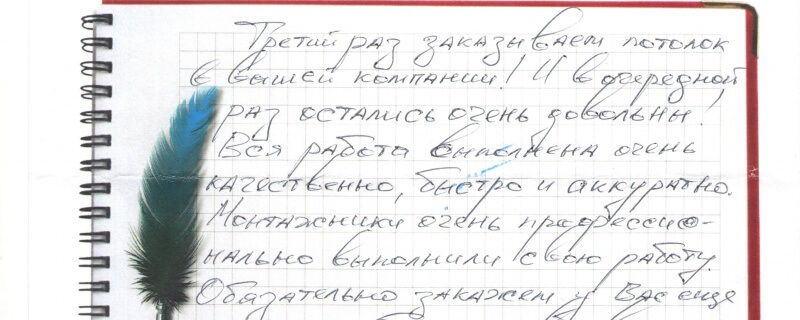 Третий раз заказываем потолок
в вашей компании! И в очередной
раз остались очень довольны!
Вся работа выполнена очень
качественно, быстро и аккуратно.
Монтажники очень профессио-
нально выполнили свою работу.
Обязательно закажем у Вас еще